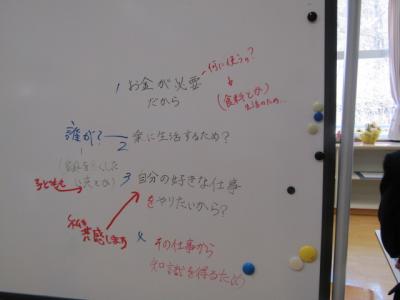 1 お金が必要
だから
何に使うの?
(食料とか)
生活のため...
誰が?
2 楽に生活するため?
子ども
3 自分の好きな仕事
をやりたいから?
私も
共感します
4 その仕事から
知識を得るため